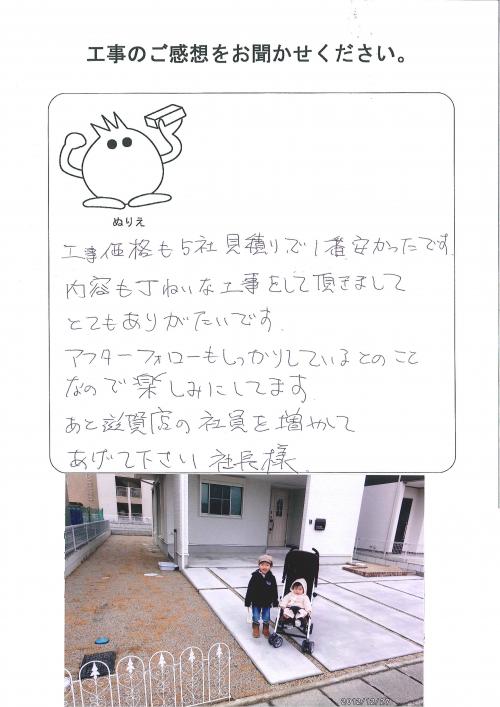 工事のご感想をお聞かせください。
ぬりえ
工事価格も5社見積りで1番安かったです.
内容も丁ねいな工事をして頂きまして
とてもありがたいです.
アフターフォローもしっかりしているとのこと
なので楽しみにしてます.
あと滋賀店の社員を増やして
あげて下さい 社長様.
2012/12/27